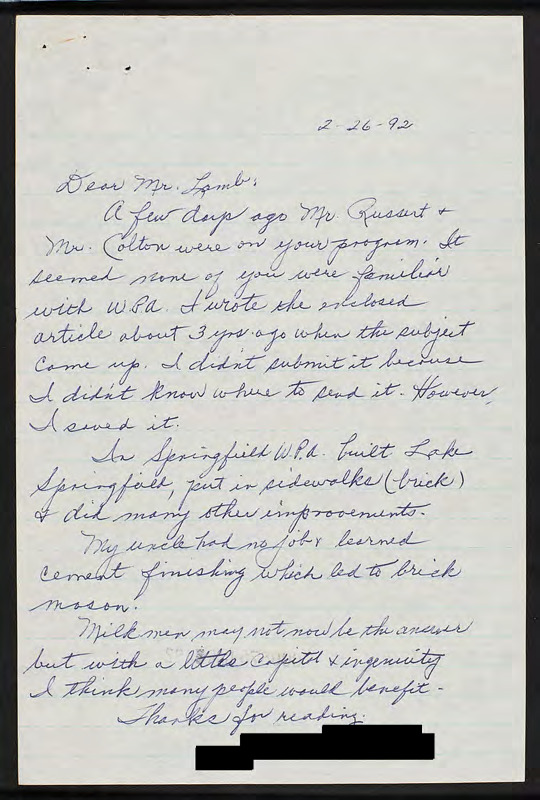 2-26-92
Dear Mr. Lamb:
A few days ago Mr. Russert &
Mr. Colton were on your program. It
seemed none of you were familiar
with W.P.A. I wrote the enclosed
article about 3 yrs. ago when the subject
came up. I didn't submit it because
I didn't know where to send it. However,
I saved it.
In Springfield W.P.A. built Lake
Springfield, put in sidewalks (brick)
& did many other improvements.
My uncle had no job & learned
cement finishing which led to brick
mason.
Milk men may not now be the answer
but with a little capitol & ingenuity
I think many people would benefit.
Thanks for reading.